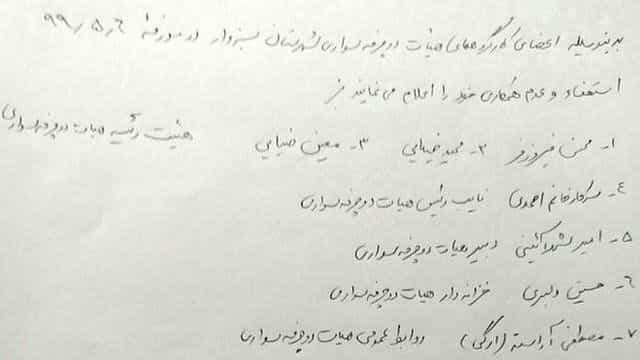 بدینوسیله اعضای کارگروههای هیئات دوچرخه سواری شهرستان سبزوار در مورخهٔ ۹۹/۵/۶
استعفاء و عدم همکاری خود را اعلام می نمایند
۱- محسن فیروزفر ۲- مجید ضیایی ۳- معین ضیایی هئیت رئیسه هیات دوچرخه سواری
۴- سرکار خانم احمدی نایب رئیس هیات دوچرخه سواری
۵- امیر دبیر هیات دوچرخه سواری
۶- حسین دلبری خزانه دار هیات دوچرخه سواری
۷- مصطفی آراسته (ارگی) روابط عمومی هیات دوچرخه سواری